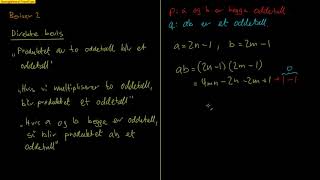 Beviser 2
Direkte bevis
„Produktet av to oddetall blir et
oddetall"
„Hvis vi multipliserer to oddetall,
blir produktet et oddetall"
„Hvis a og b begge er oddetall,
så blir produktet ab et
oddetall"
P: a og b er begge oddetall
Q: ab er et oddetall
a = 2n - 1 , b = 2m - 1
ab = (2n - 1)(2m - 1)
0
= 4mn - 2n - 2m + 1 + 1 - 1